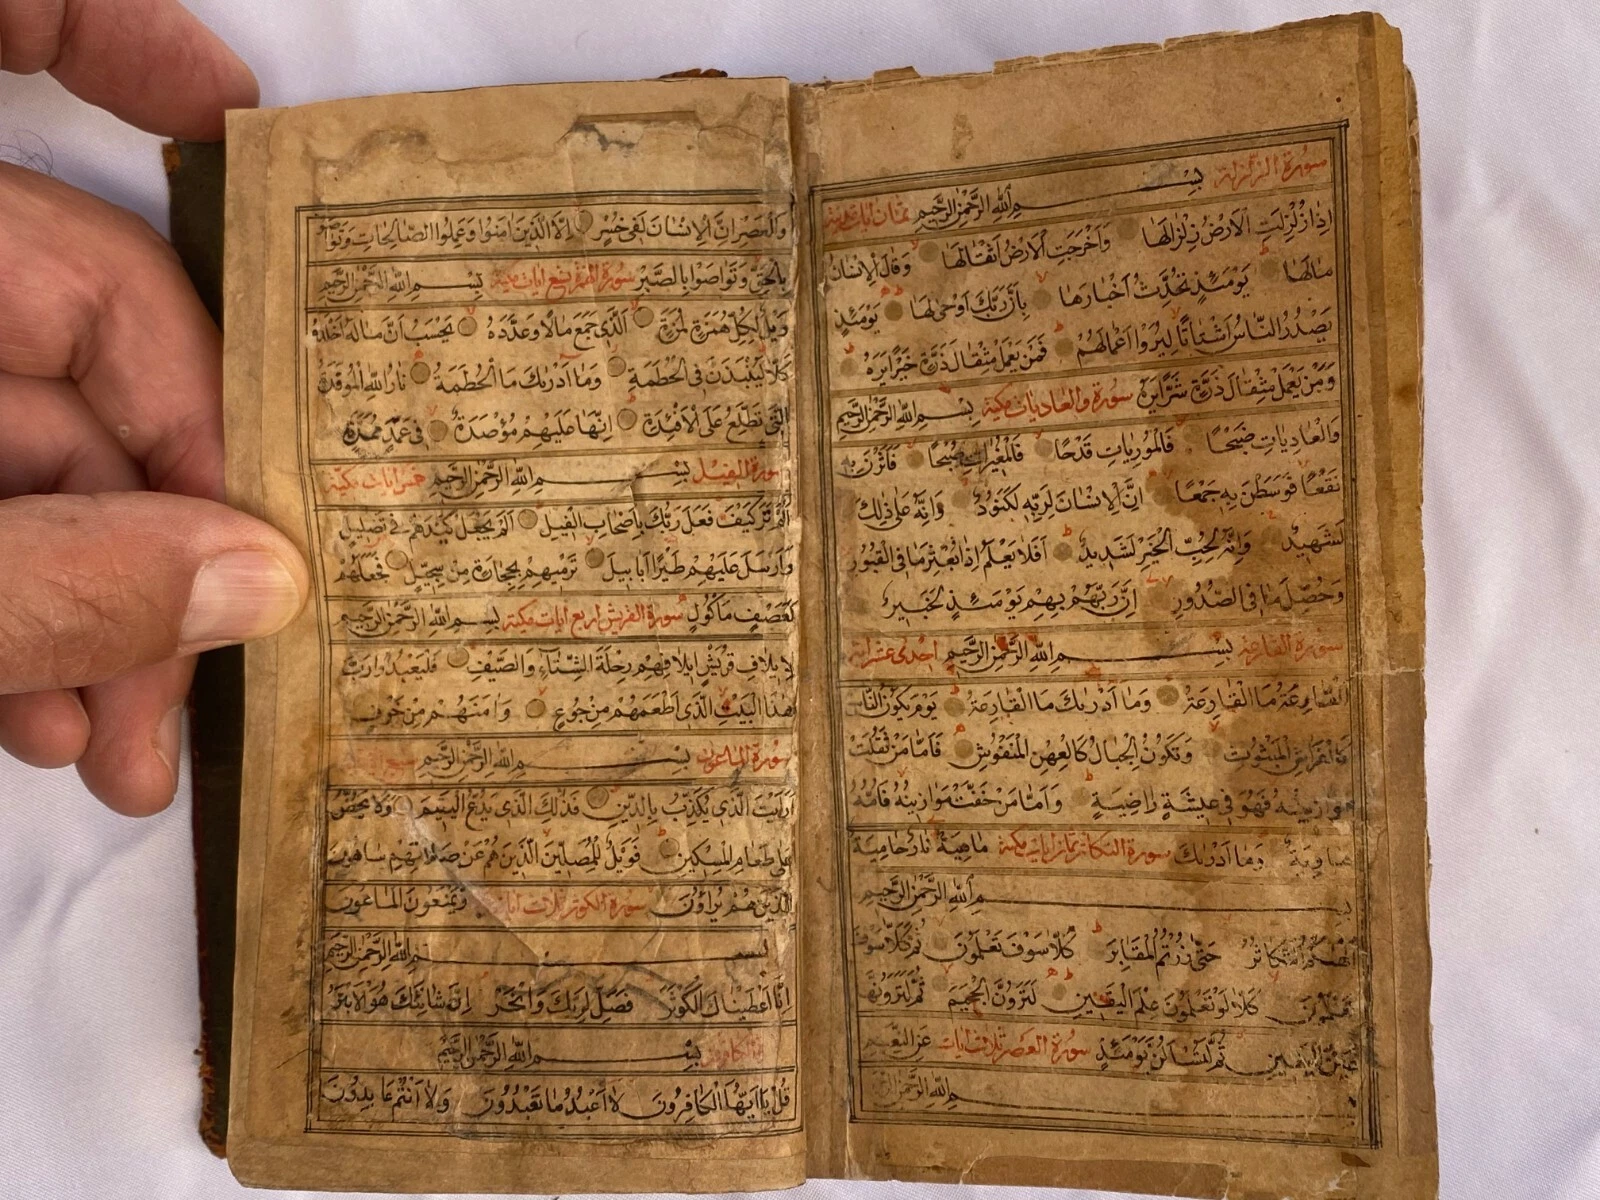 سورة الزلزلة بســـم
الله الرحمن الرحيم ثمان ايات مدنية
اِذَا زُلْزِلَتِ الْاَرْضُ زِلْزَالَهَا وَاَخْرَجَتِ الْاَرْضُ اَثْقَالَهَا وَقَالَ الْاِنْسَانُ
مَالَهَا يَوْمَئِذٍ تُحَدِّثُ اَخْبَارَهَا بِاَنَّ رَبَّكَ اَوْحٰى لَهَا يَوْمَئِذٍ
يَصْدُرُ النَّاسُ اَشْتَاتًا لِيُرَوْا اَعْمَالَهُمْ فَمَنْ يَعْمَلْ مِثْقَالَ ذَرَّةٍ خَيْرًا يَرَهُ
وَمَنْ يَعْمَلْ مِثْقَالَ ذَرَّةٍ شَرًّا يَرَهُ سورة والعاديات مكية بِسْــمِ اللهِ الرَّحْمٰنِ الرَّحِيمِ
وَالْعَادِيَاتِ ضَبْحًا فَالْمُورِيَاتِ قَدْحًا فَالْمُغِيرَاتِ صُبْحًا فَاَثَرْنَ بِهِ
نَقْعًا فَوَسَطْنَ بِهِ جَمْعًا اِنَّ الْاِنْسَانَ لِرَبِّهِ لَكَنُودٌ وَاِنَّهُ عَلٰى ذٰلِكَ
لَشَهِيدٌ وَاِنَّهُ لِحُبِّ الْخَيْرِ لَشَدِيدٌ اَفَلَا يَعْلَمُ اِذَا بُعْثِرَ مَا فِى الْقُبُورِ
وَحُصِّلَ مَا فِى الصُّدُورِ اِنَّ رَبَّهُمْ بِهِمْ يَوْمَئِذٍ لَخَبِيرٌ
سورة القارعة بِســـمِ اللهِ الرَّحْمٰنِ الرَّحِيمِ احدى عشر اية
اَلْقَارِعَةُ مَا الْقَارِعَةُ وَمَا اَدْرٰىكَ مَا الْقَارِعَةُ يَوْمَ يَكُونُ النَّاسُ
كَالْفَرَاشِ الْمَبْثُوثِ وَتَكُونُ الْجِبَالُ كَالْعِهْنِ الْمَنْفُوشِ فَاَمَّا مَنْ ثَقُلَتْ
مَوَازِينُهُ فَهُوَ فِى عِيشَةٍ رَاضِيَةٍ وَاَمَّا مَنْ خَفَّتْ مَوَازِينُهُ فَاُمُّهُ
هَاوِيَةٌ وَمَا اَدْرٰىكَ سورة التكاثر ثمان ايات مكية مَاهِيَهْ نَارٌ حَامِيَةٌ
بِســـمِ اللهِ الرَّحْمٰنِ الرَّحِيمِ
اَلْهٰىكُمُ التَّكَاثُرُ حَتّٰى زُرْتُمُ الْمَقَابِرَ كَلَّا سَوْفَ تَعْلَمُونَ ثُمَّ كَلَّا سَوْفَ
تَعْلَمُونَ كَلَّا لَوْ تَعْلَمُونَ عِلْمَ الْيَقِينِ لَتَرَوُنَّ الْجَحِيمَ ثُمَّ لَتَرَوُنَّهَا
عَيْنَ الْيَقِينِ ثُمَّ لَتُسْـَٔلُنَّ يَوْمَئِذٍ سورة العصر ثلاث ايات عَنِ النَّعِيمِ
ـمِ اللهِ الرَّحْمٰنِ
وَالْعَصْرِ اِنَّ الْاِنْسَانَ لَفِى خُسْرٍ اِلَّا الَّذِينَ اٰمَنُوا وَعَمِلُوا الصَّالِحَاتِ وَتَوَاصَوْا
بِالْحَقِّ وَتَوَاصَوْا بِالصَّبْرِ سورة الهمزة تسع ايات مكية بِسْــمِ اللهِ الرَّحْمٰنِ الرَّحِيمِ
وَيْلٌ لِكُلِّ هُمَزَةٍ لُمَزَةٍ اَلَّذِى جَمَعَ مَالًا وَعَدَّدَهُ يَحْسَبُ اَنَّ مَالَهُ اَخْلَدَهُ
كَلَّا لَيُنْبَذَنَّ فِى الْحُطَمَةِ وَمَا اَدْرٰىكَ مَا الْحُطَمَةُ نَارُ اللهِ الْمُوقَدَةُ
الَّتِى تَطَّلِعُ عَلَى الْاَفْئِدَةِ اِنَّهَا عَلَيْهِمْ مُؤْصَدَةٌ فِى عَمَدٍ مُمَدَّدَةٍ
سورة الفيل بِســـمِ اللهِ الرَّحْمٰنِ الرَّحِيمِ خمس ايات مكية
اَلَمْ تَرَ كَيْفَ فَعَلَ رَبُّكَ بِاَصْحَابِ الْفِيلِ اَلَمْ يَجْعَلْ كَيْدَهُمْ فِى تَضْلِيلٍ
وَاَرْسَلَ عَلَيْهِمْ طَيْرًا اَبَابِيلَ تَرْمِيهِمْ بِحِجَارَةٍ مِنْ سِجِّيلٍ فَجَعَلَهُمْ
كَعَصْفٍ مَاْكُولٍ سورة القريش اربع ايات مكية بِسْــمِ اللهِ الرَّحْمٰنِ الرَّحِيمِ
لِاِيلَافِ قُرَيْشٍ اِيلَافِهِمْ رِحْلَةَ الشِّتَاءِ وَالصَّيْفِ فَلْيَعْبُدُوا رَبَّ
هٰذَا الْبَيْتِ الَّذِى اَطْعَمَهُمْ مِنْ جُوعٍ وَاٰمَنَهُمْ مِنْ خَوْفٍ
سورة الماعون بِســـمِ اللهِ الرَّحْمٰنِ الرَّحِيمِ سبع
اَرَاَيْتَ الَّذِى يُكَذِّبُ بِالدِّينِ فَذٰلِكَ الَّذِى يَدُعُّ الْيَتِيمَ وَلَا يَحُضُّ
عَلٰى طَعَامِ الْمِسْكِينِ فَوَيْلٌ لِلْمُصَلِّينَ الَّذِينَ هُمْ عَنْ صَلَاتِهِمْ سَاهُونَ
الَّذِينَ هُمْ يُرَاؤُنَ سورة الكوثر ثلاث ايات وَيَمْنَعُونَ الْمَاعُونَ
بِســـمِ اللهِ الرَّحْمٰنِ الرَّحِيمِ
اِنَّا اَعْطَيْنَاكَ الْكَوْثَرَ فَصَلِّ لِرَبِّكَ وَانْحَرْ اِنَّ شَانِئَكَ هُوَ الْاَبْتَرُ
الكافرون بِســـمِ اللهِ الرَّحْمٰنِ الرَّحِيمِ
قُلْ يَا اَيُّهَا الْكَافِرُونَ لَا اَعْبُدُ مَا تَعْبُدُونَ وَلَا اَنْتُمْ عَابِدُونَ